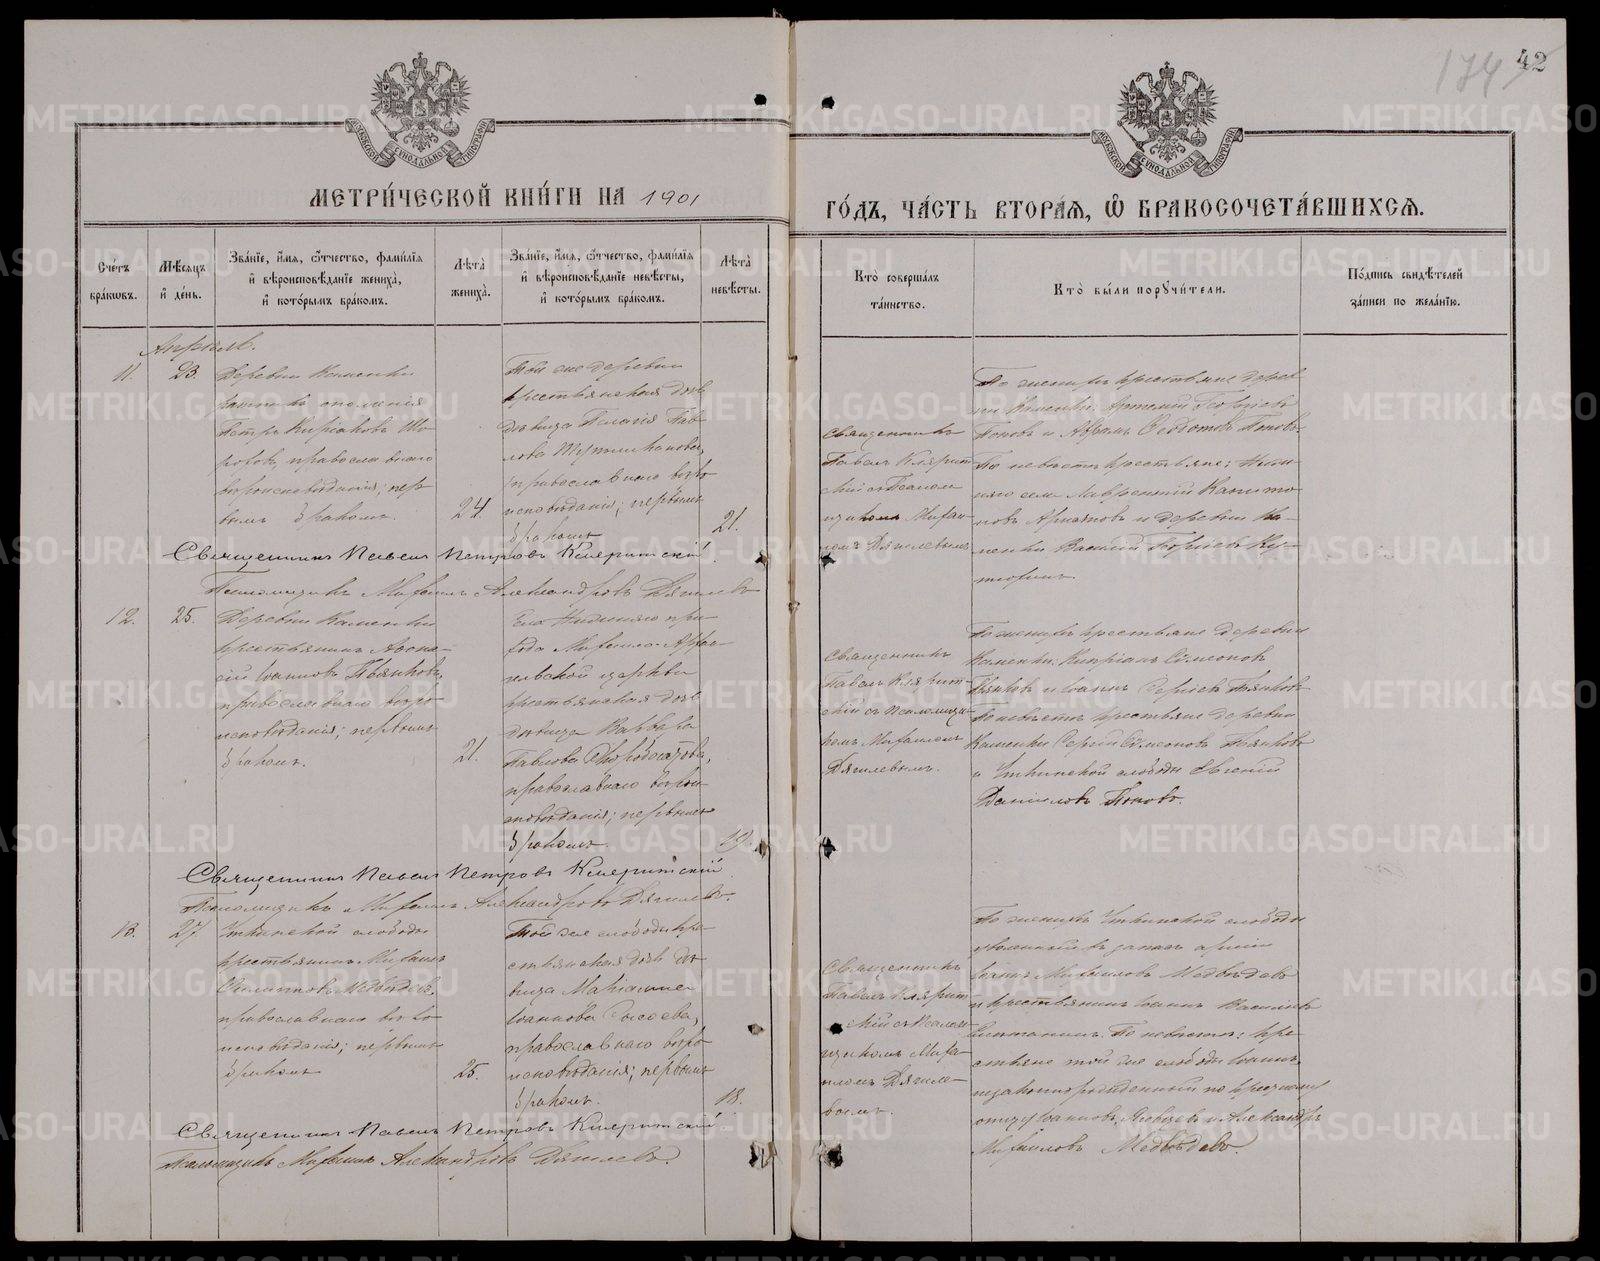 174 42
МЕТРИ́ЧЕСКОЙ КНИ́ГИ НА 1901
ГО́ДЪ, ЧА́СТЬ ВТОРА́Я, Ѽ БРАКОСОЧЕТА́ВШИХСЯ.
Сче́тъ бра́кѡвъ.
Мѣ́сяцъ и҆ де́нь.
Зва́нїе, и҆́мя, ѻ҆́тчество, фами́лїя
и҆ вѣроисповѣ́данїе жениха̀,
и҆ кото́рымъ бра́комъ.
Лѣ́та̀ жениха̀.
Зва́нїе, и҆́мя, ѻ҆́тчество, фами́лїя
и҆ вѣроисповѣ́данїе невѣ́сты,
и҆ кото́рымъ бра́комъ.
Лѣ́та̀ невѣ́сты.
Кто̀ соверша́лъ та́инство.
Кто̀ бы́ли порꙋчи́тели.
По́дпись свидѣ́телей за́писи по жела́нїю.
Апрѣль.
11.
23.
Деревни Каменки
ратникъ ополченія
Петръ Киріаковъ
православнаго
вѣроисповѣданія; пер
вымъ бракомъ.
24
Той же деревни
крестьянская дочь
дѣвица Пелагія Пав
лова
православнаго вѣро
исповѣданія; первымъ
бракомъ
21.
Священникъ
Павелъ Кляритскій
съ Псаломщикомъ Михаи
ломъ Дягилевымъ
По женихѣ крестьяне дерев
ни Каменки: Артемій Георгіевъ
Поповъ и Авраамъ Поповъ.
По невѣстѣ крестьяне:
села Лаврентій Капито
новъ и деревни Ка
менки Василій
Священникъ Павелъ Петровъ Кляритскій.
Псаломщикъ Михаилъ Александровъ Дягилевъ
12.
25.
Деревни Каменки
крестьянинъ
Іоанновъ Пьянковъ,
православнаго вѣро
исповѣданія; первымъ
бракомъ.
21.
при
хода Михаило-Архан
гельской церкви
крестьянская дочь
дѣвица Варвара
Павлова
православнаго вѣрои
сповѣданія; первымъ
бракомъ.
19.
Священникъ
Павелъ Клярит
скій съ псаломщи
комъ Михаиломъ
Дягилевымъ.
По женихѣ крестьяне деревни
Каменки: Кипріанъ Симеоновъ
Пьянковъ и Іоаннъ Сергіевъ Пьянковъ
По невѣстѣ крестьяне деревни
Каменки Сергій Симеоновъ Пьянковъ
и Уткинской слободы Евгеній
Даніиловъ Поповъ.
Священникъ Павелъ Петровъ Кляритскій.
Псаломщикъ Михаилъ Александровъ Дягилевъ.
13.
27
Уткинской слободы
крестьянинъ Михаилъ
Филипповъ Медвѣдевъ,
православнаго вѣро
исповѣданія; первымъ
бракомъ
25.
Той же слободы кре
стьянская дочь дѣ
вица Маріамна
Іоаннова Сысоева,
православнаго вѣро
исповѣданія; первымъ
бракомъ.
18.
Священникъ
Павелъ Клярит
скій съ Псалом
щикомъ Михаи
ломъ Дягиле
вымъ.
По женихѣ Уткинской слободы
уволенный въ запасъ арміи
Михаиловъ Медвѣдевъ
и крестьянинъ Іоаннъ Василіевъ
По невѣстѣ: кре
стьяне той же слободы Іоаннъ
незаконнорожденный по крестному
отцу Іоанновъ и Александръ
Михаиловъ Медвѣдевъ.
Священникъ Павелъ Петровъ Кляритскій
Псаломщикъ Михаилъ Александровъ Дягилевъ.
METRIKI.GASO-URAL.RU